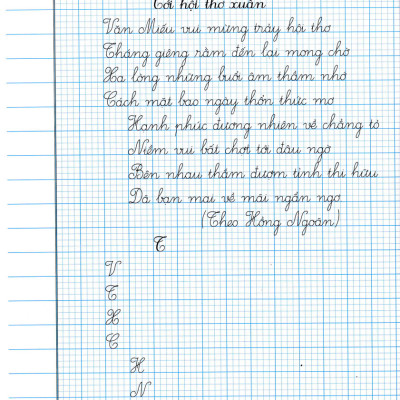 Tới hội thơ xuân
Văn Miếu vui mừng trảy hội thơ
Tháng giêng rằm đến lại mong chờ
Xa lòng những buổi âm thầm nhớ
Cách mặt bao ngày thổn thức mơ
Hạnh phúc đương nhiên về chẳng tỏ
Niềm vui bất chợt tới đâu ngờ
Bên nhau thắm đượm tình thi hữu
Dã bạn mai về mãi ngẩn ngơ
(Theo Hồng Ngoãn)
T
V
T
X
C
H
N